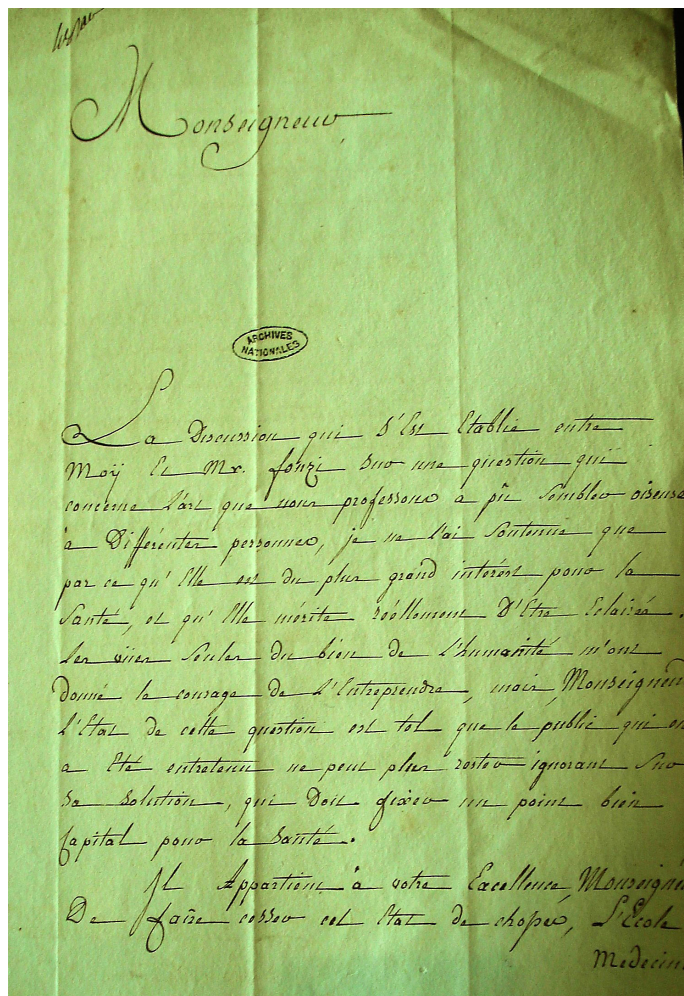 Monseigneur
ARCHIVES
NATIONALES
La Discussion qui S'Est Etablie entre
Moÿ Et Mr. fonzi sur une question qui
concerne L'art que nous professons a pû Sembler oiseuse
à Différentes personnes, je ne l'ai Soutenue que
par ce qu'Elle est du plus grand intérest pour la
Santé, et qu'Elle mérite réellement D'Etre Eclairée.
Les vües Seules du bien de L'humanité m'ont
donné le courage de L'Entreprendre, mais, Monseigneur
L'Etat de cette question est tel que le public qui en
a Eté entretenu ne peut plus rester ignorant Sur
sa solution, qui Doit fixer un point bien
Capital pour la Santé.
Il Appartient à votre Excellence, Monseigne
De faire cesser cet Etat de choses, L'École
Medecine